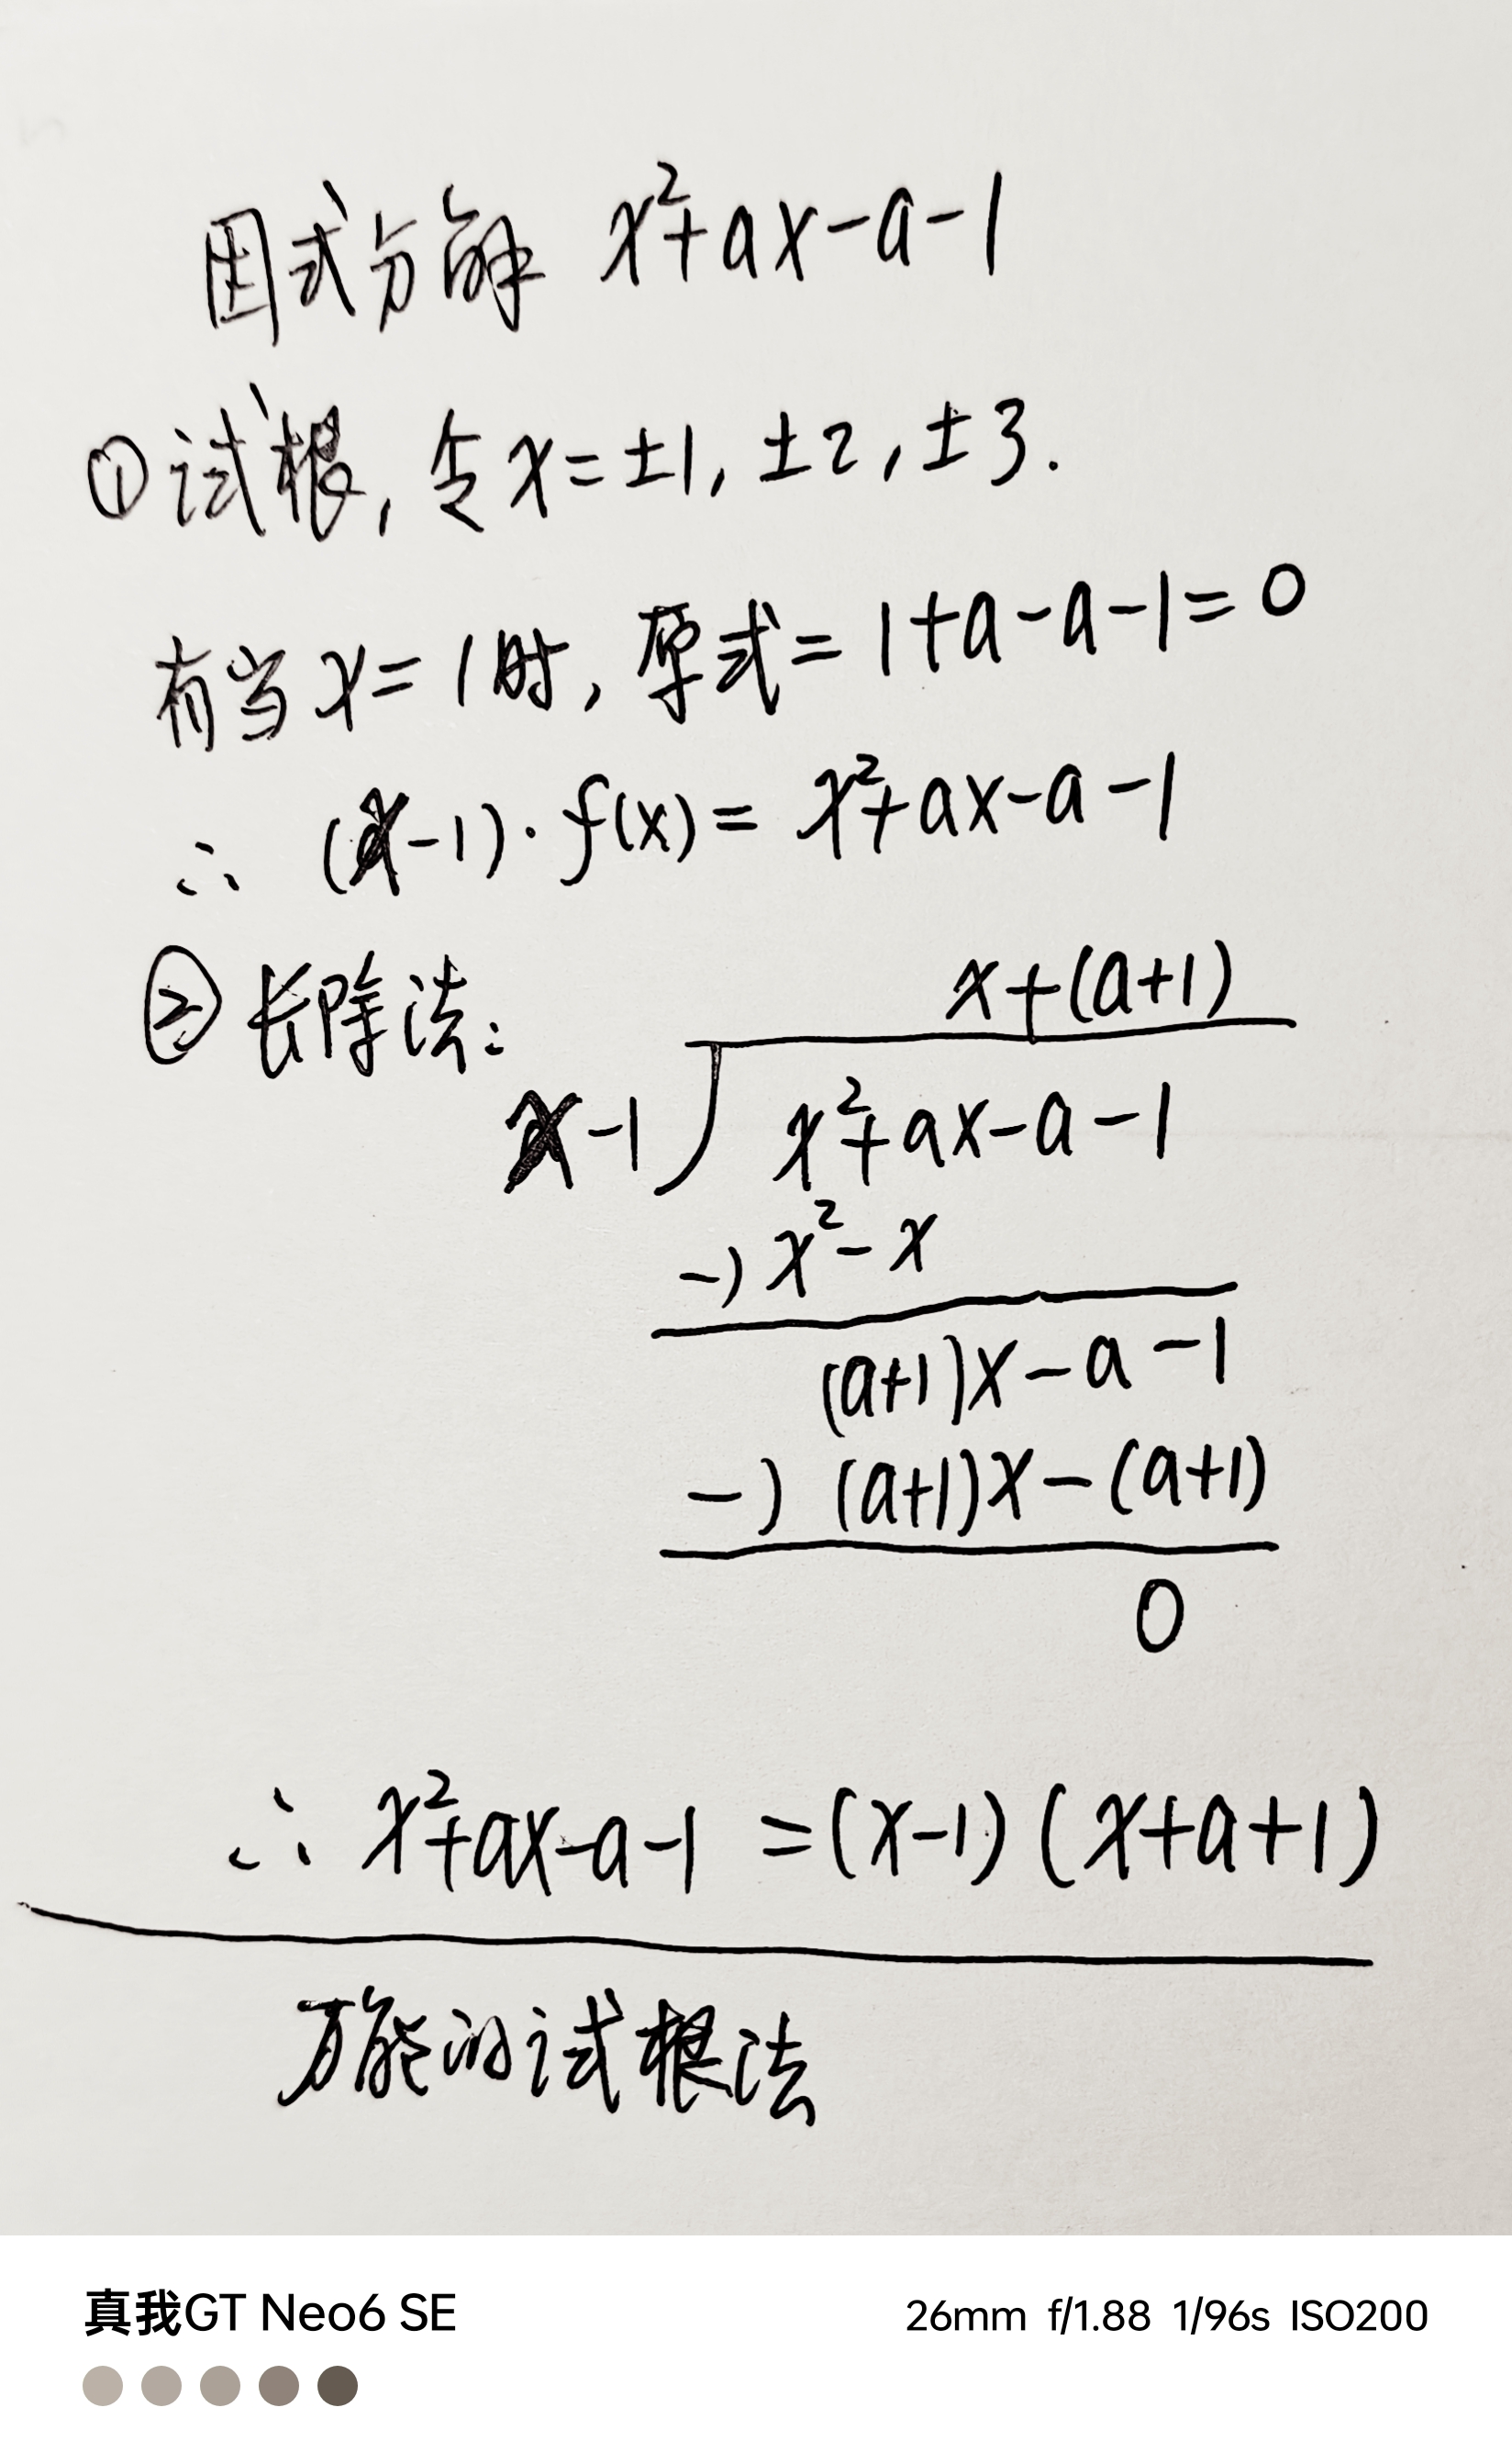 因式分解 x²+ax-a-1
①试根,令x=±1,±2,±3.
有当x=1时,原式=1+a-a-1=0
∴ (x-1)·f(x)=x²+ax-a-1
②长除法:
x+(a+1)
x-1 x²+ax-a-1
-) x²-x
(a+1)x-a-1
-) (a+1)x-(a+1)
0
∴ x²+ax-a-1=(x-1)(x+a+1)
万能的试根法
真我GT Neo6 SE
26mm f/1.88 1/96s ISO200